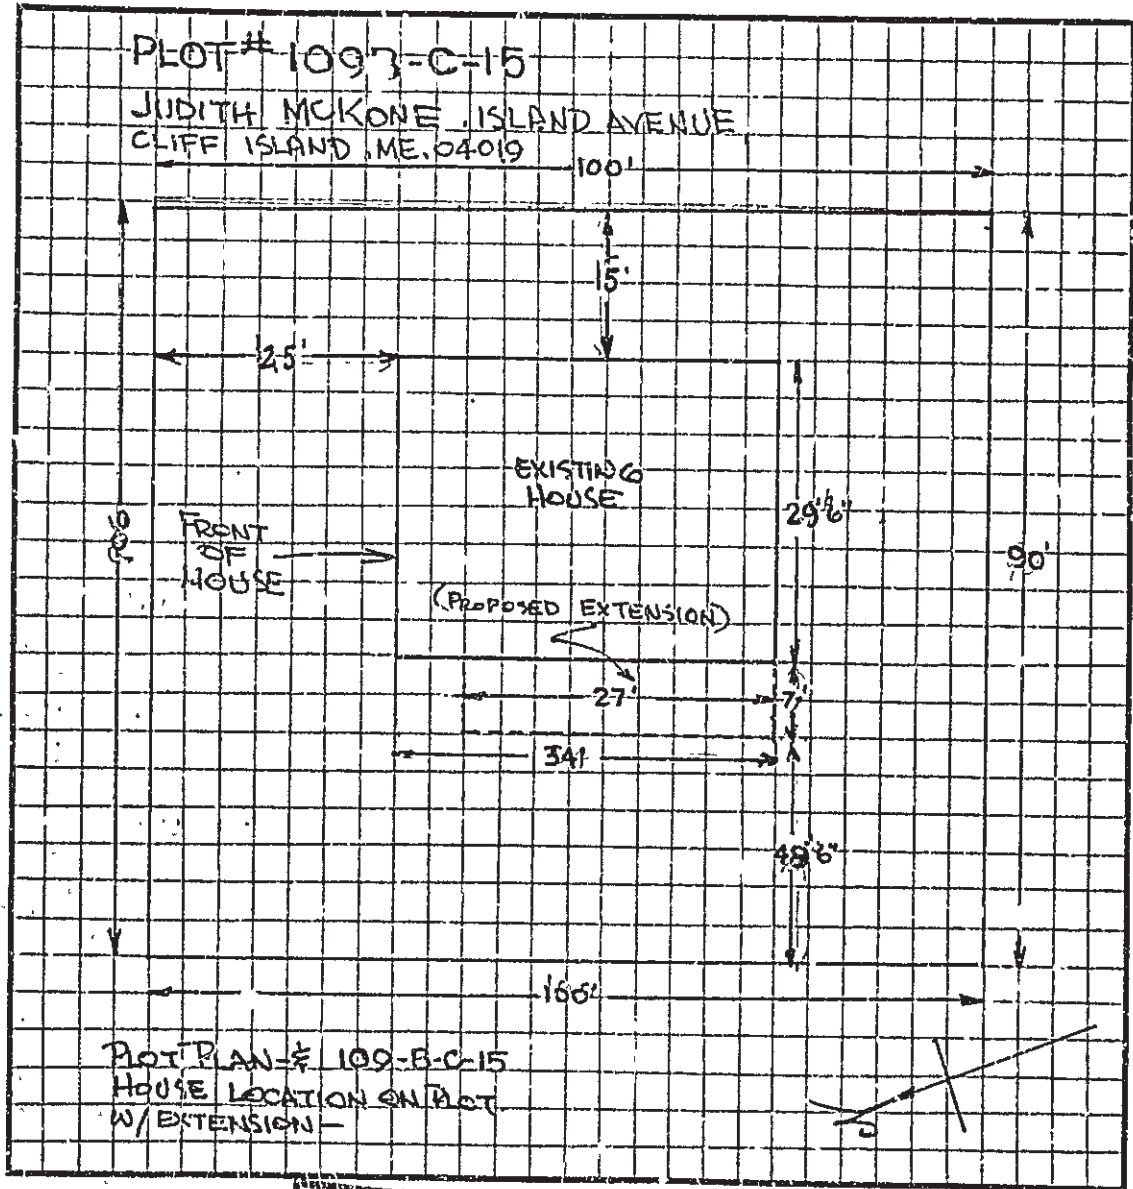 PLOT # 109 -C-15
JUDITH MCKONE . ISLAND AVENUE
CLIFF ISLAND .ME.04019
100'
15'
25'
EXISTING
HOUSE
29'6"
90'
FRONT
OF
HOUSE
90'
(PROPOSED EXTENSION)
27'
7'
34'
48'6"
100'
PLOT PLAN-# 109-B-C-15
HOUSE LOCATION ON PLOT
W/ EXTENSION-